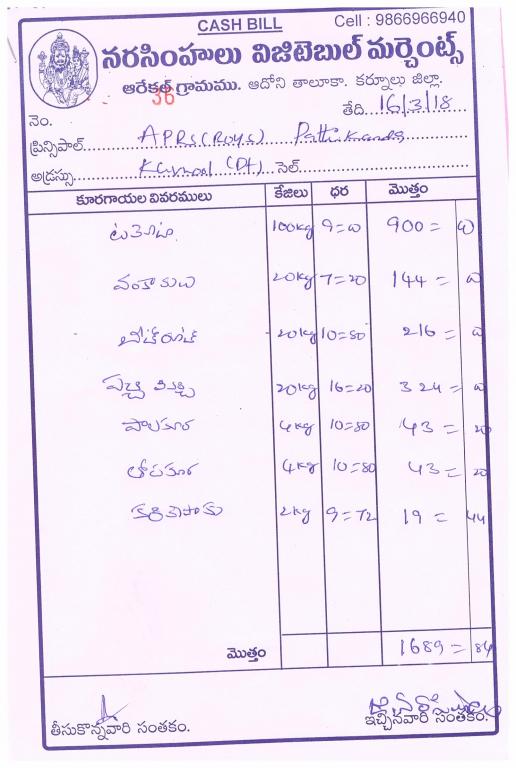 CASH BILL
Cell : 9866966940
నరసింహులు విజిటెబుల్ మర్చెంట్స్
ఆరేకల్ గ్రామము. ఆదోని తాలూకా. కర్నూలు జిల్లా.
36
తేది. 16/3/18
నెం.
ప్రిన్సిపాల్. APRS (Boys)
అడ్రస్సు. Kurnool (Dt) సెల్.
కూరగాయల వివరములు కేజిలు ధర మొత్తం
టమోటా 100kg 9=00 900= 00
వంకాయలు 20kg 7=20 144= 00
బీట్‌రూట్ 20kg 10=80 216= 00
పచ్చి మిర్చి 20kg 16=20 324= 00
పాలకూర 4kg 10=80 43= 20
తోటకూర 4kg 10=80 43= 20
కరివేపాకు 2kg 9=72 19= 44
మొత్తం 1689= 84
తీసుకొన్నవారి సంతకం. ఇచ్చినవారి సంతకం.